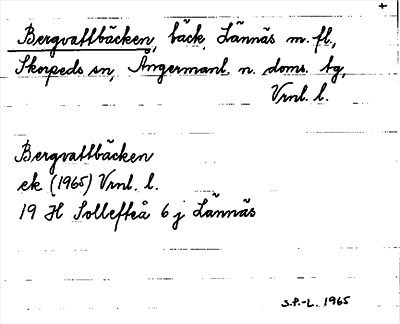 +
Bergvattbäcken, bäck, Lännäs m.fl.,
Skorpeds sn, Ångermanl. n. doms. tg,
Vrnl. l.
Bergvattbäcken
ek (1965) Vrnl. l.
19 H Sollefteå 6 j Lännäs
S.P.-L. 1965